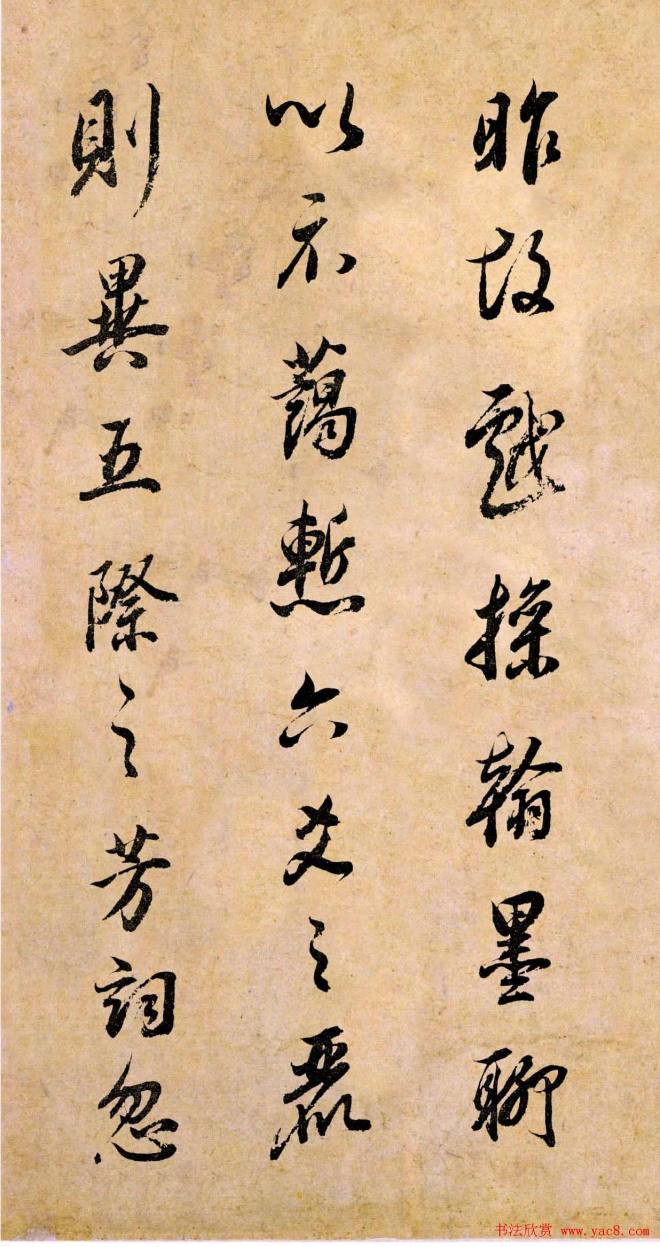 昨故戲操翰墨聊
以示藹慙六爻之麗
則異五際之芳詞忽
书法欣赏 www.yac8.com